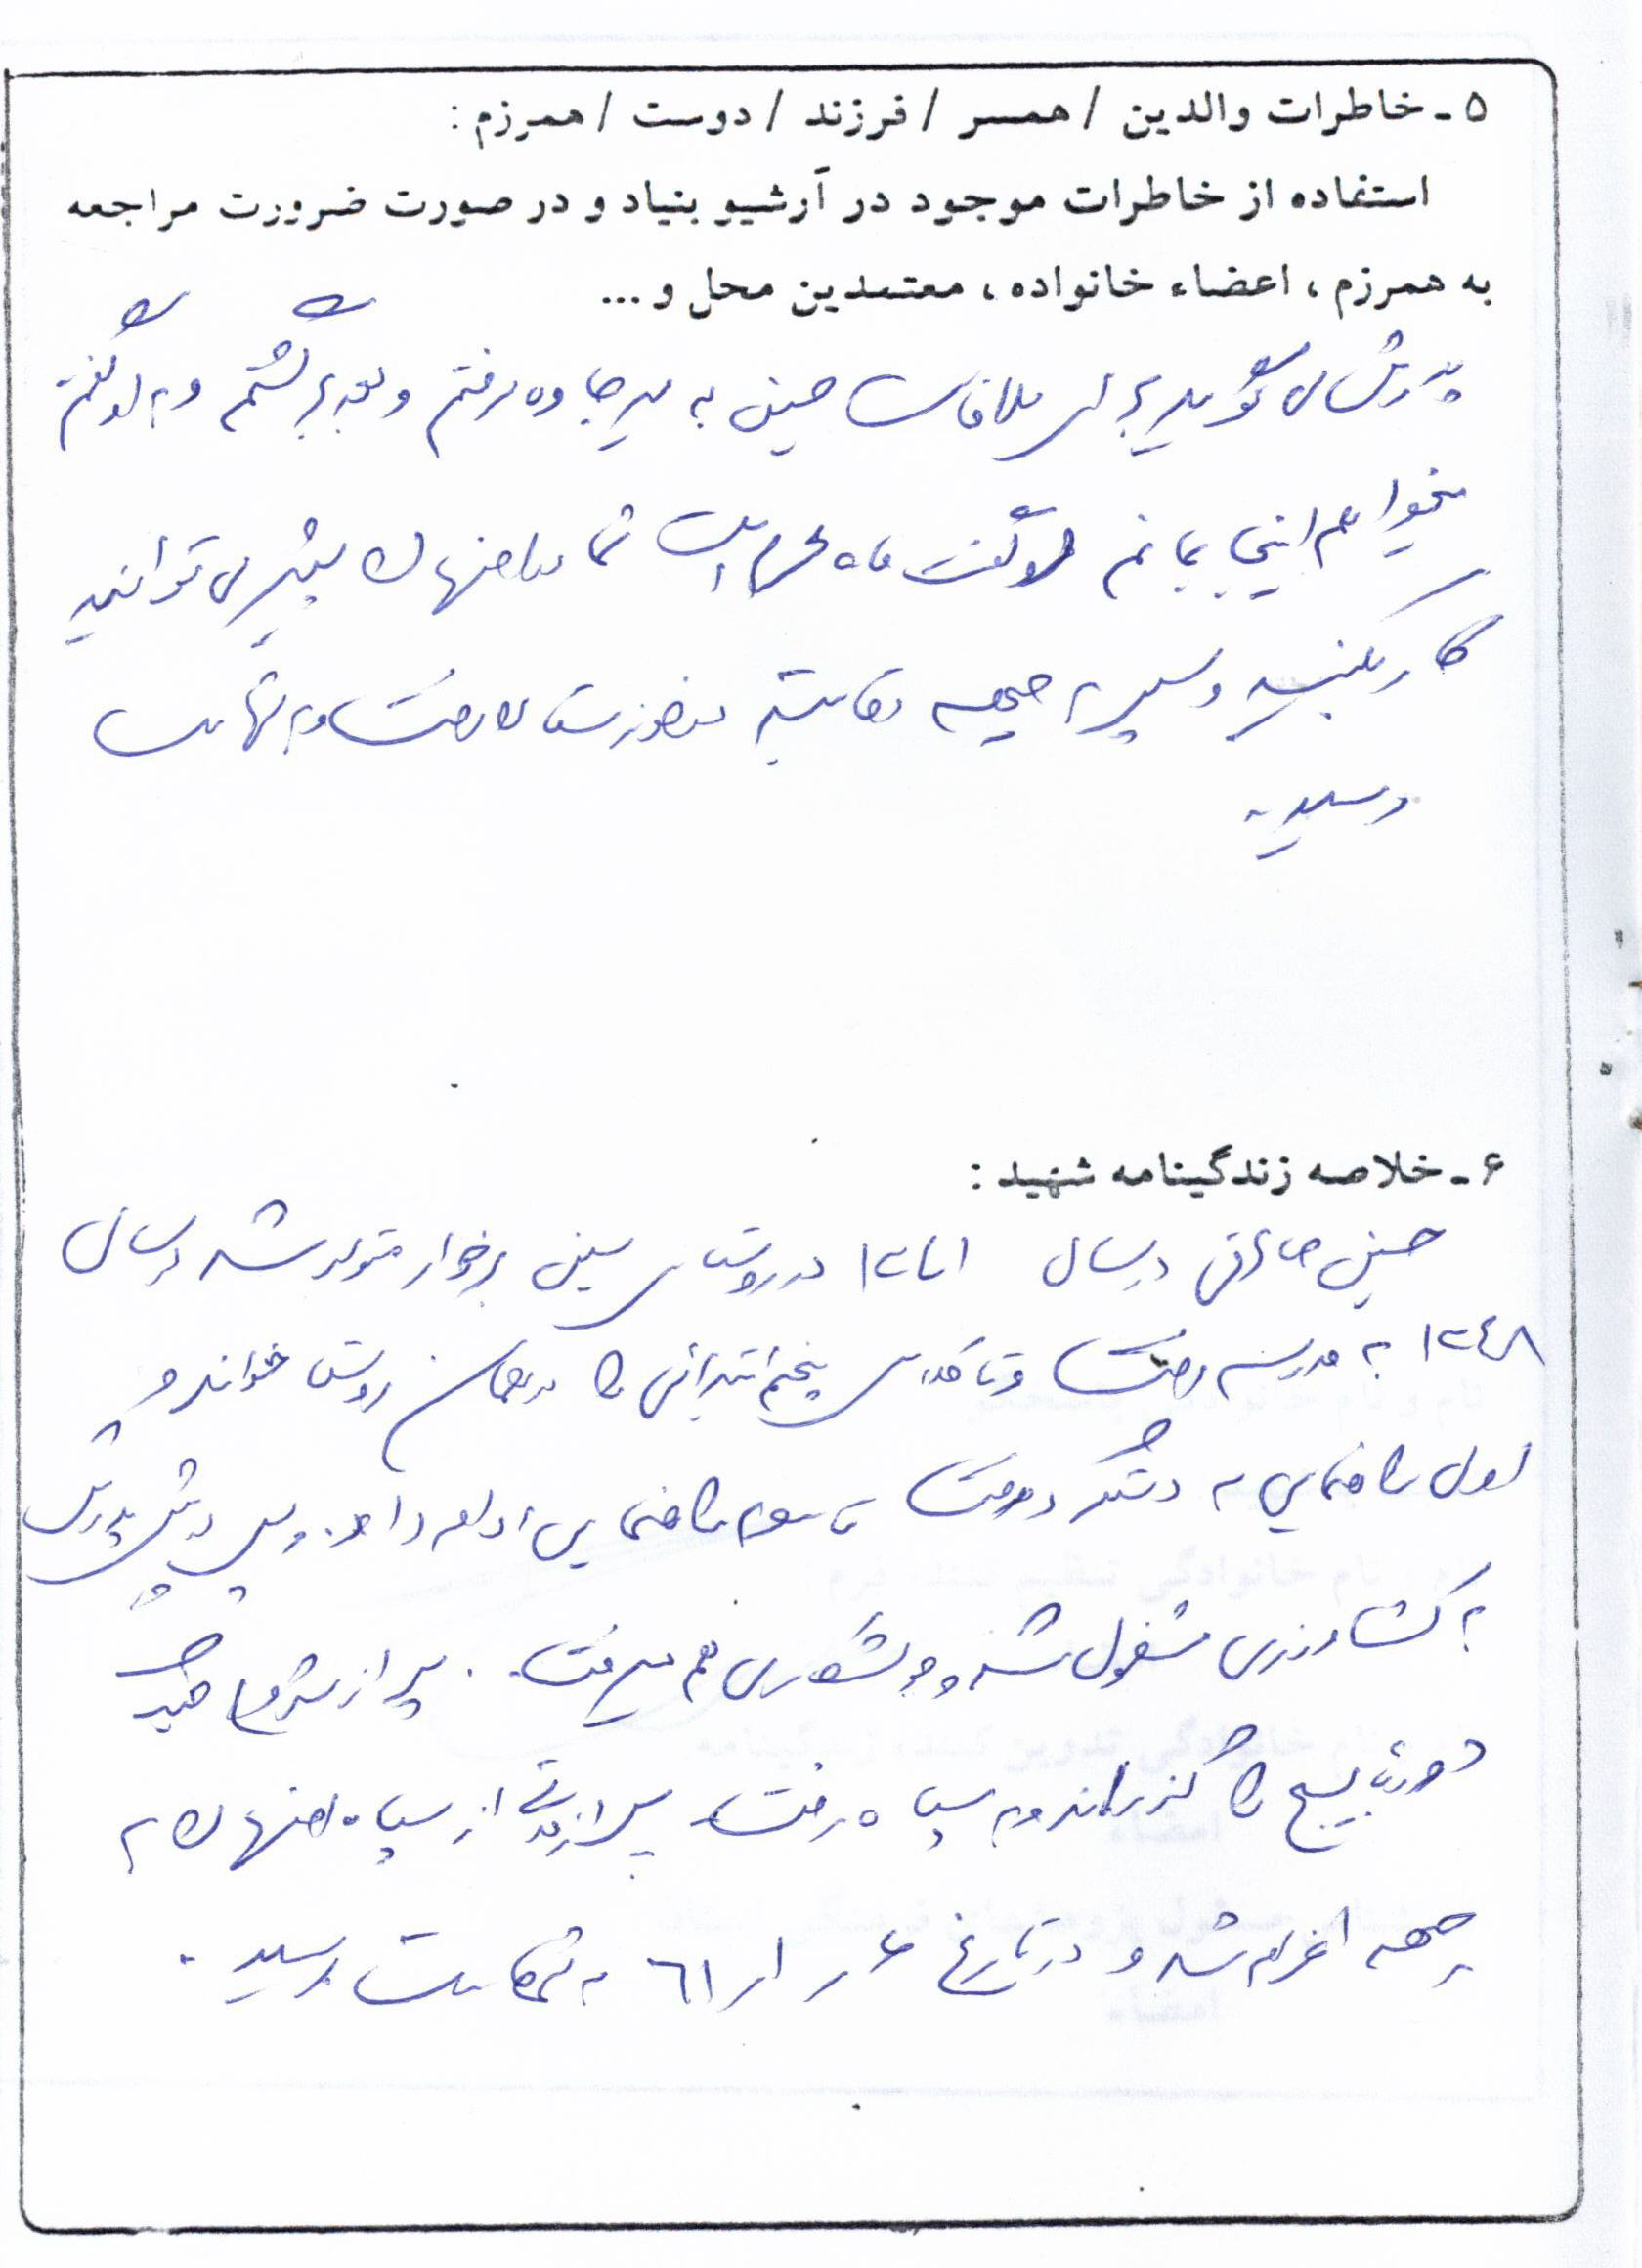 ۵ ـ خاطرات والدین / همسر / فرزند / دوست / همرزم :
استفاده از خاطرات موجود در آرشیو بنیاد و در صورت ضرورت مراجعه
به همرزم ، اعضاء خانواده ، معتمدین محل و ...
پدرش می گوید برای ملاقات حسین به میرجاوه رفتم و بعد برگشتم و به او گفتم
میخواهم اینجا بمانم او گفت ماه محرم است شما در اصفهان بیشتر می توانید
کار بکنید و سپس به جبهه رفت و به شهادت
رسید
۶ ـ خلاصه زندگینامه شهید :
حسین صادقی در سال در روستای سین برخوار متولد شد در سال
۱۳۴۸ به مدرسه رفت و تا کلاس پنجم ابتدائی را در همان روستا خواند و
اول راهنمایی به دستگرد رفت تا سوم راهنمایی ادامه داد و پس پیش پدرش
به کشاورزی مشغول شد و جوشکاری هم میرفت . پس از شروع جنگ
دوره بسیج را گذراند و به سپاه رفت پس از مدتی از سپاه اصفهان به
جبهه اعزام شد و در تاریخ ۶۱ به شهادت رسید .